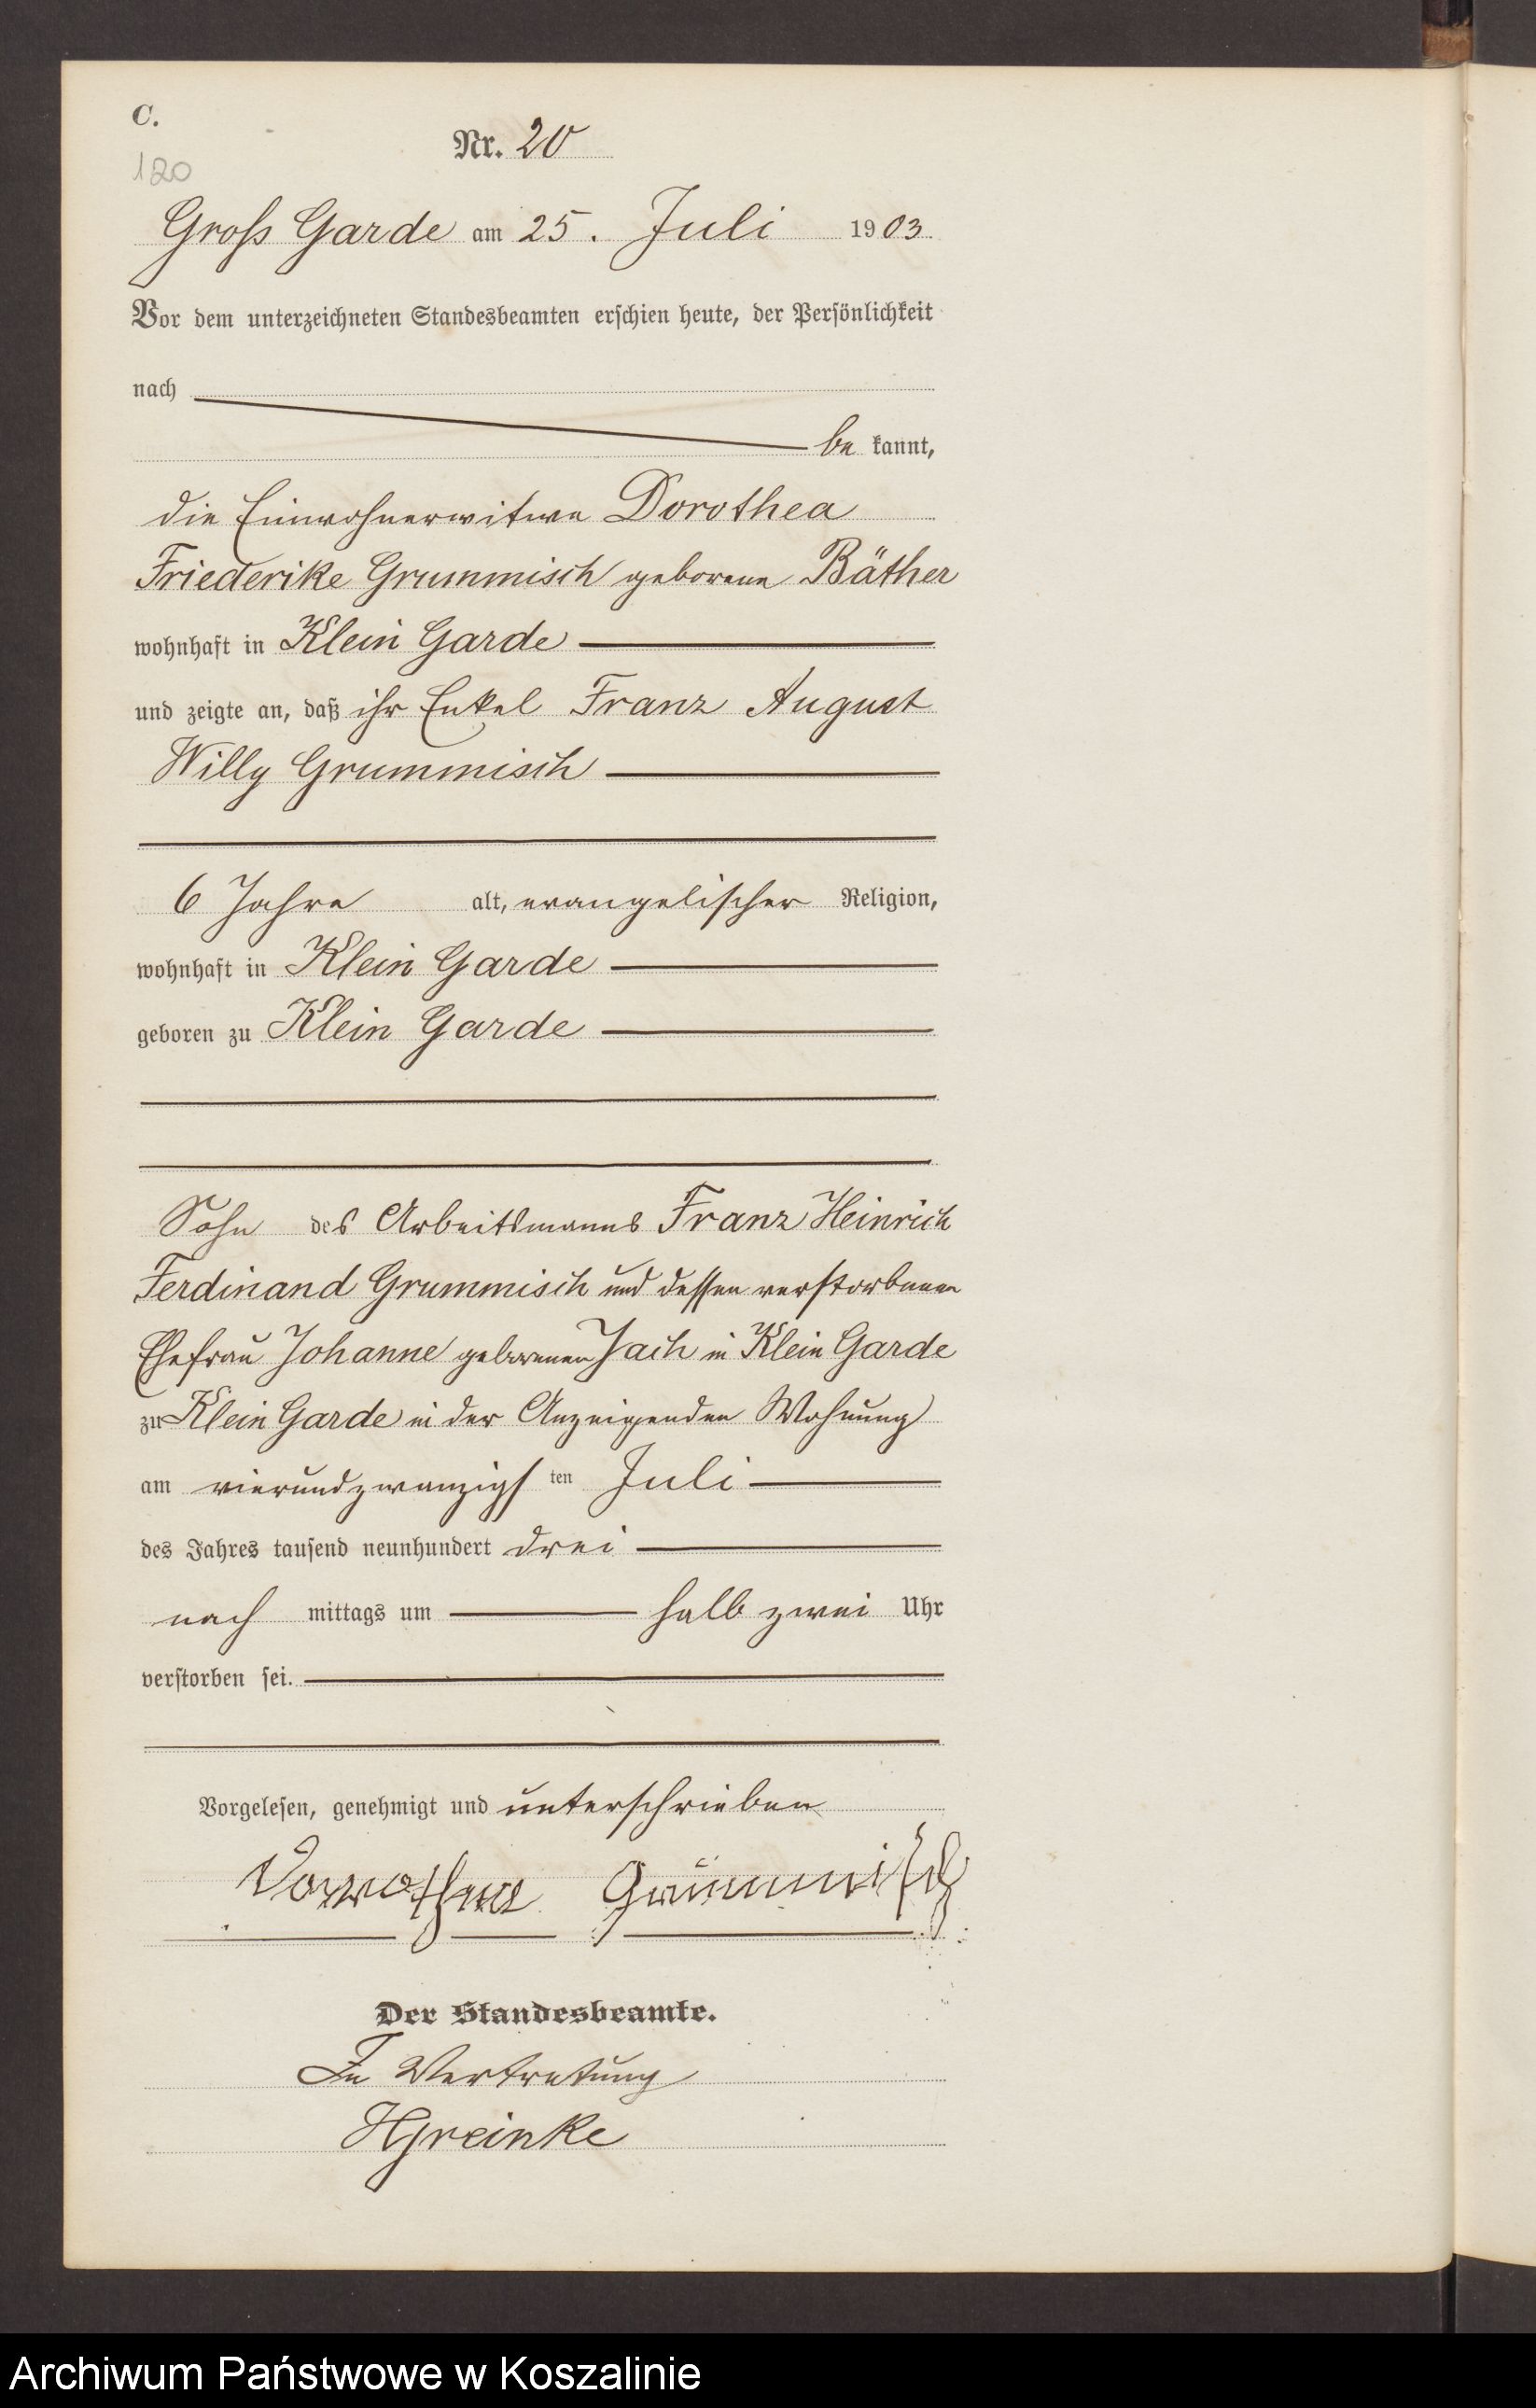 C.
120
Nr. 20
Gross Garde am 25. Juli 1903
Vor dem unterzeichneten Standesbeamten erschien heute, der Persönlichkeit
nach
be kannt,
die Einwohnerwitwe Dorothea
Friederike Grummisch geborene Bäther
wohnhaft in Klein Garde
und zeigte an, daß ihr Enkel Franz August
Willy Grummisch
6 Jahre alt, evangelischer Religion,
wohnhaft in Klein Garde
geboren zu Klein Garde
Sohn des Arbeitsmanns Franz Heinrich
Ferdinand Grummisch und dessen verstorbenen
Ehefrau Johanne geborenen Jach in Klein Garde
zu Klein Garde in der Anzeigenden Wohnung
am vierundzwanzigsten Juli
des Jahres tausend neunhundert drei
nach mittags um halb zwei Uhr
verstorben sei.
Vorgelesen, genehmigt und unterschrieben
Dorothea Grummisch
Der Standesbeamte.
In Vertretung
Archiwum Państwowe w Koszalinie